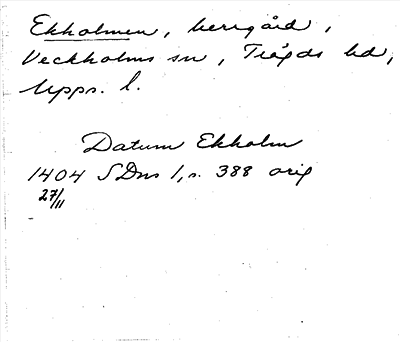 Ekholmen, herrgård,
Veckholms sn, Trögds hd,
Upps. l.
Datum Ekholm
1404 SDns 1, s. 388 orig
27/11